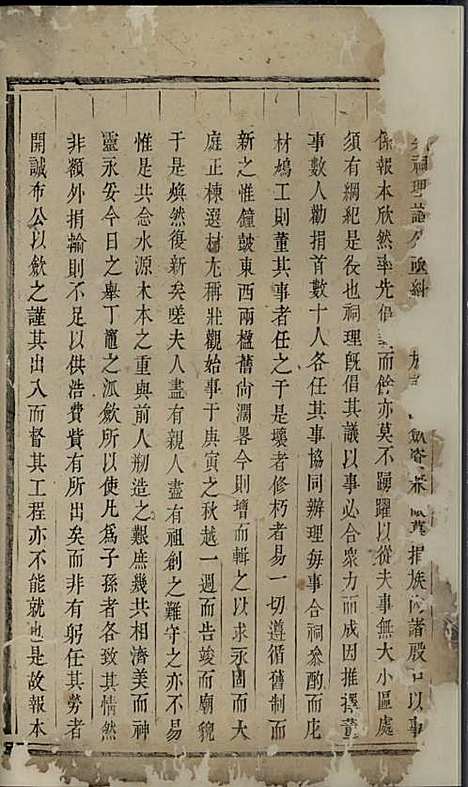 祠理
係報本欣然率先倡而餘亦莫不踴躍以從夫事無大小區處
須有綱紀是役也祠理既倡其議以事必合衆力而成因推擇董
事數人勸捐首數十人各任其事協同辦理每事合祠叅酌而庀
材鳩工則董其事者任之于是壞者修朽者易一切遵循舊制而
新之惟鐘鼓東西兩楹舊尚濶畧今則增而輯之以求永固而大
庭正棟選材尤稱壯觀始事于庚寅之秋越一週而告竣而廟貌
于是煥然復新矣嗟夫人盡有親人盡有祖創之難守之亦不易
惟是共念水源木本之重與前人剏造之艱庶幾共相濟美而神
靈永妥今日之舉丁竈之派歛所以使凡爲子孫者各致其情然
非額外捐輸則不足以供浩費費有所出矣而非有躬任其勞者
開誠布公以歛之謹其出入而督其工程亦不能就也是故報本